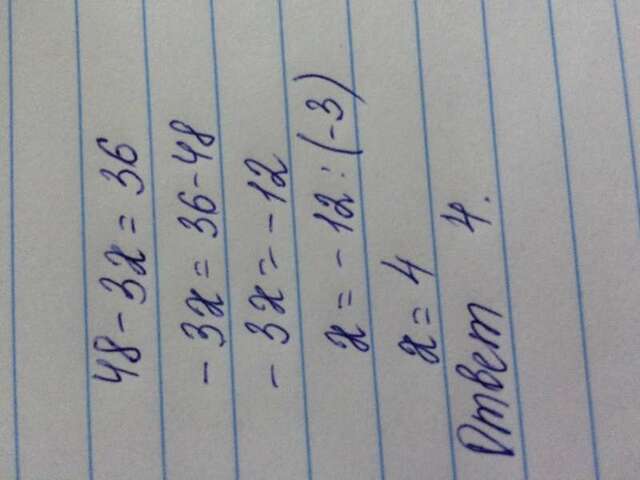 48 - 3x = 36
- 3x = 36 - 48
- 3x = - 12
x = - 12 : (-3)
x = 4
Ответ 4.